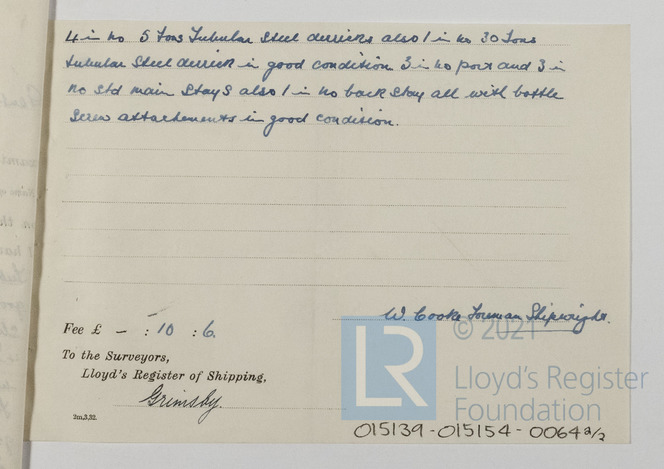 4 in no 5 Tons Tubular Steel derricks also 1 in no 30 Tons
tubular Steel derrick in good condition 3 in no port and 3 in
no Std main Stays also 1 in no back Stay all with bottle
Screw attachements in good condition.
W. Cooke Foreman Shipwright.
Fee £ - : 10 : 6.
To the Surveyors,
Lloyd's Register of Shipping,
Grimsby.
2m,3,32.
© 2021
LR
Lloyd's Register
Foundation
015139-015154-0064 2/2